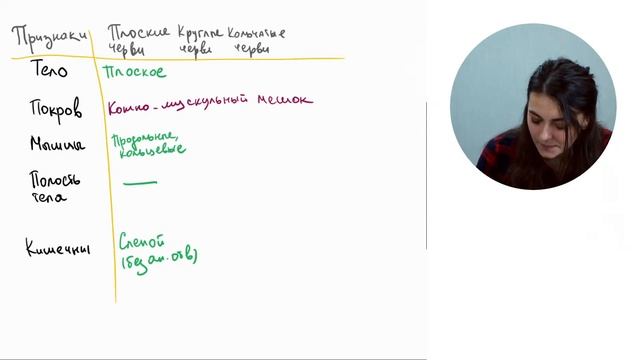 Признаки Плоские Круглые Кольчатые
черви черви черви
Тело Плоское
Покров Кожно-мускульный мешок
Мышцы Продольные,
кольцевые
Полость —
тела
Кишечни Слепой
(без ан. отв)